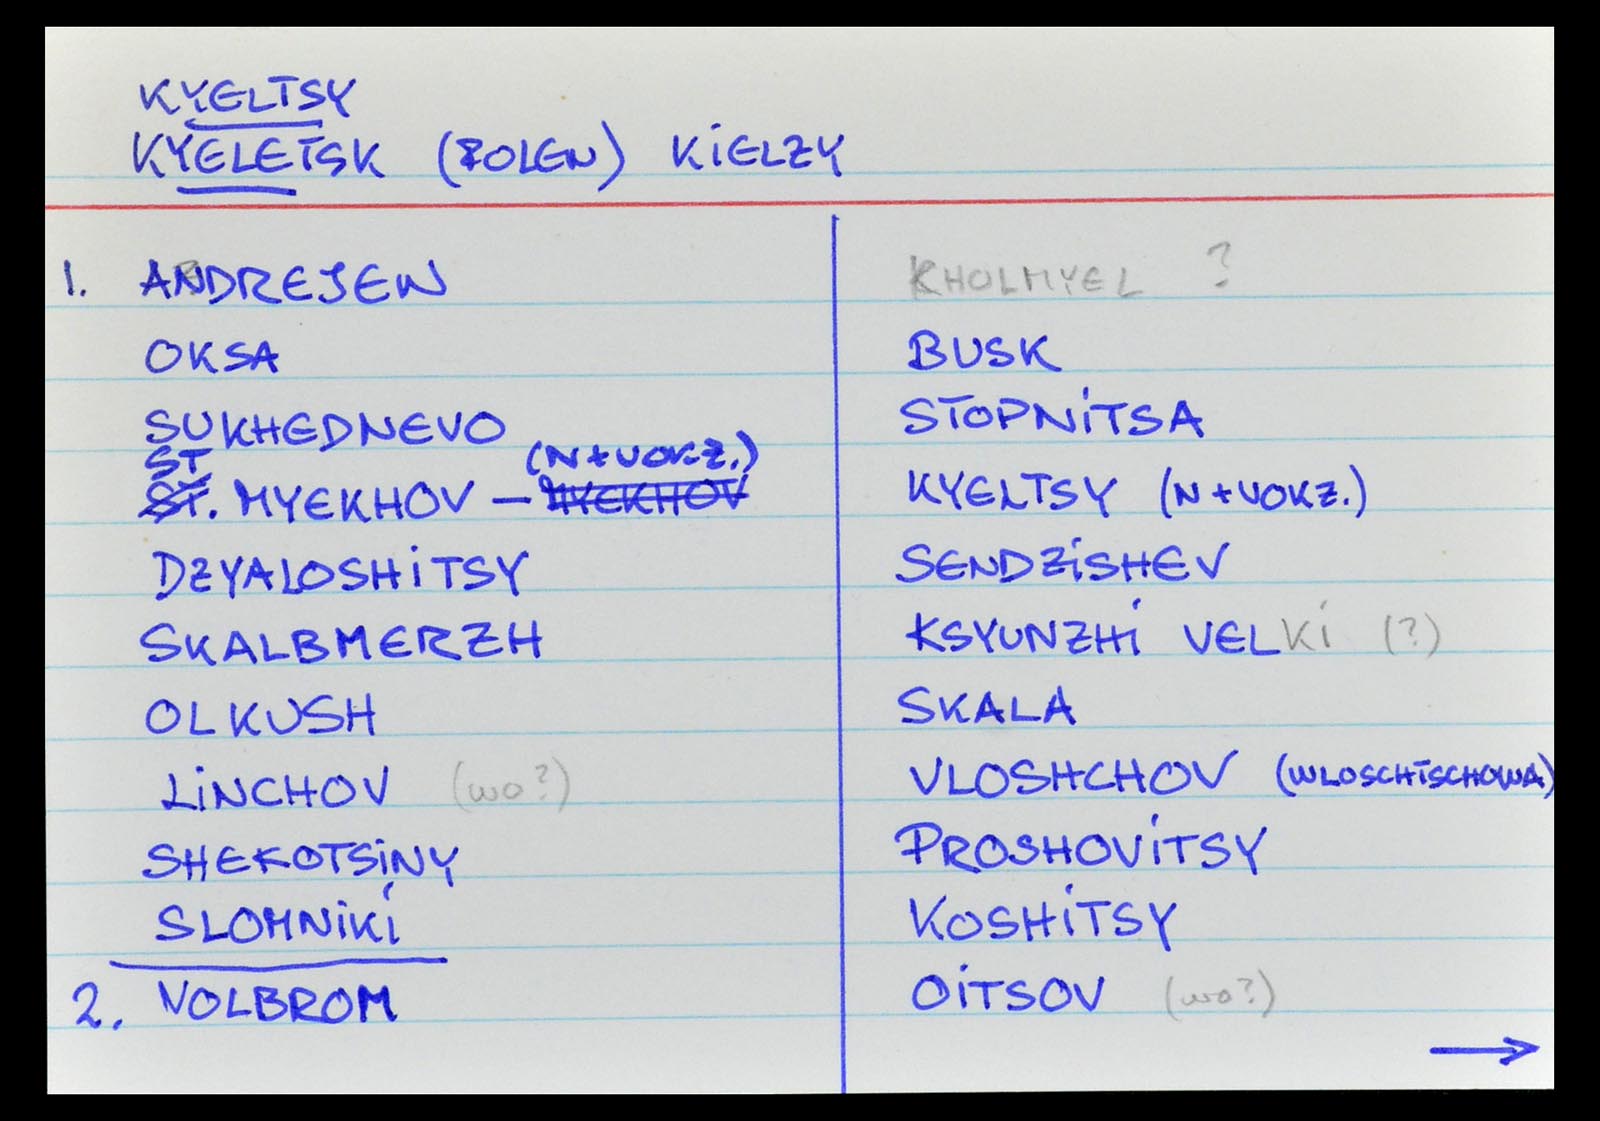 KYELTSY
KYELETSK (POLEN) KIELZY
1. ANDREJEW
OKSA
SUKHEDNEVO
ST
ST. MYEKHOV – MYEKHOV (N+VOKZ.)
DZYALOSHITSY
SKALBMERZH
OLKUSH
LINCHOV (WO?)
SHEKOTSINY
SLOMNIKI
2. VOLBROM
KHOLMYEL ?
BUSK
STOPNITSA
KYELTSY (N+VOKZ.)
SENDZISHEV
KSYUNZHI VELKI (?)
SKALA
VLOSHCHOV (WLOSCHTSCHOWA)
PROSHOVITSY
KOSHITSY
OITSOV (WO?)
→